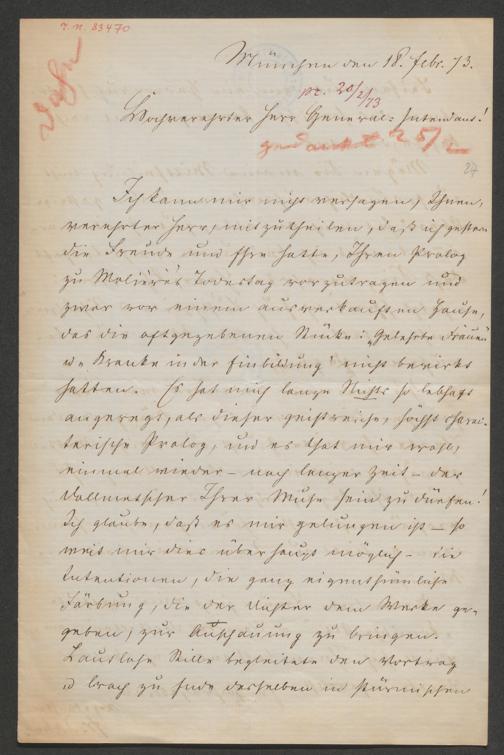 J. N. 83470
Dahn
München den 18. Febr. 73.
pr. 20/2/73
Hochverehrter Herr General-Intendant!
gedankt 25/2
27
Ich kann mir nicht versagen, Ihnen,
verehrter Herr, mitzutheilen, daß ich gestern
die Freude und Ehre hatte, Ihren Prolog
zu Molière's Todestag vorzutragen und
zwar vor einem ausverkauften Hause,
das die oftgegebenen Stücke: „Gelehrte Frauen
u „Kranke in der Einbildung“ nicht bewirkt
hatten. Es hat mich lange Nichts so lebhaft
angeregt, als dieser geistreiche, höchst charak-
teristische Prolog, und es that mir wohl,
einmal wieder – nach langer Zeit – der
Dollmetscher Ihrer Muse sein zu dürfen!
Ich glaube, daß es mir gelungen ist – so
weit mir dies überhaupt möglich – die
Intentionen, die ganz eigenthümliche
Färbung, die der Dichter dem Werke ge-
geben, zur Anschauung zu bringen.
Lautlose Stille begleitete den Vortrag
u brach zu Ende desselben in stürmischen